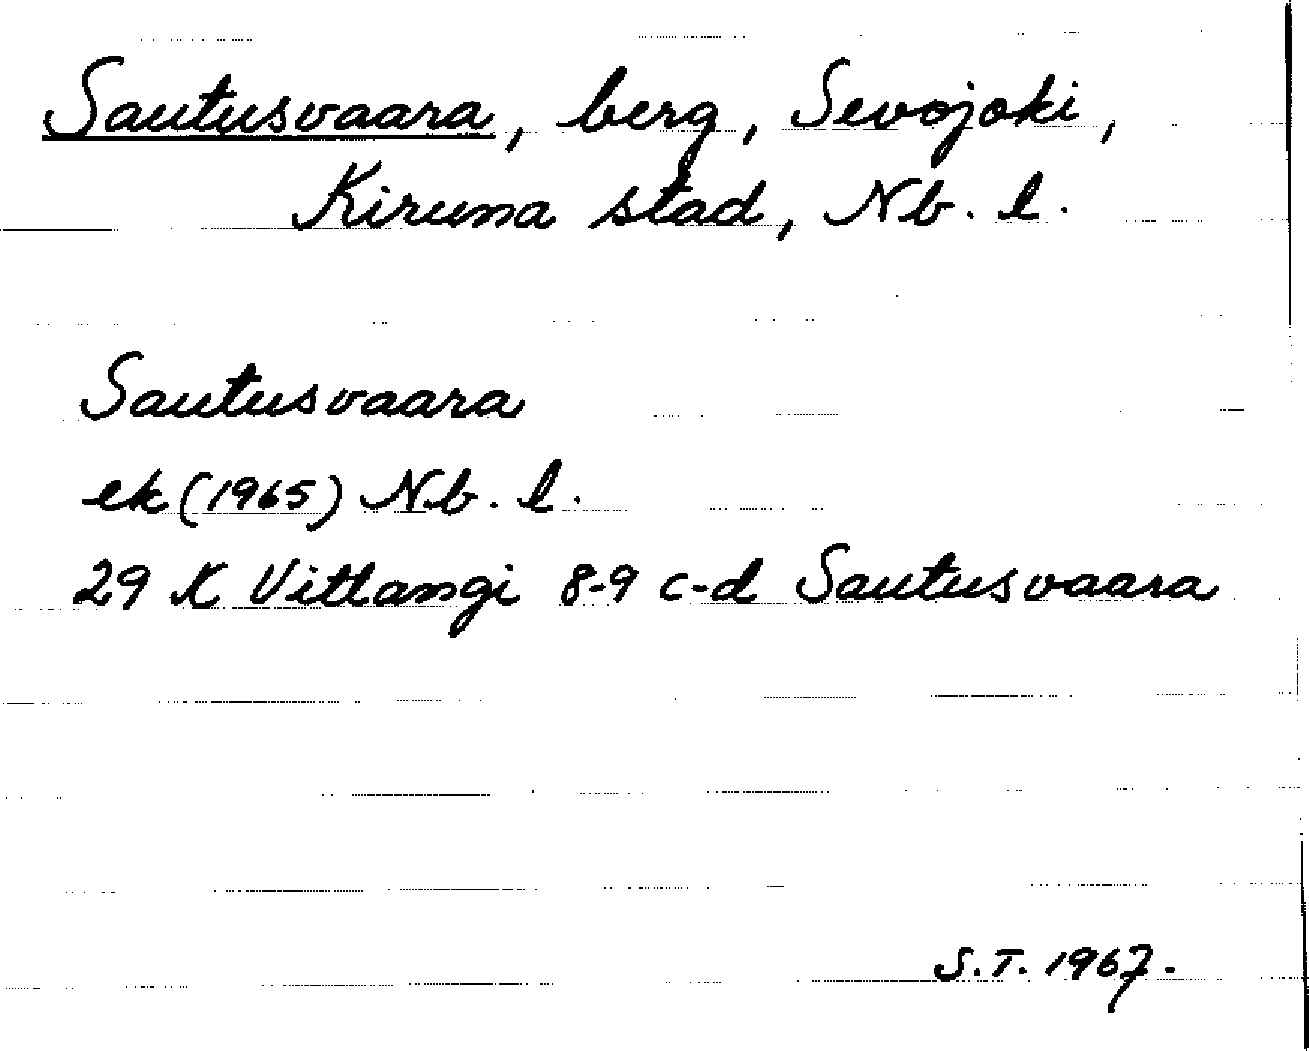 Sautusvaara, berg, Sevojoki,
Kiruna stad, Nb. l.
Sautusvaara
ek (1965) Nb. l.
29 K Vittangi 8-9 c-d Sautusvaara
S.T. 1967.